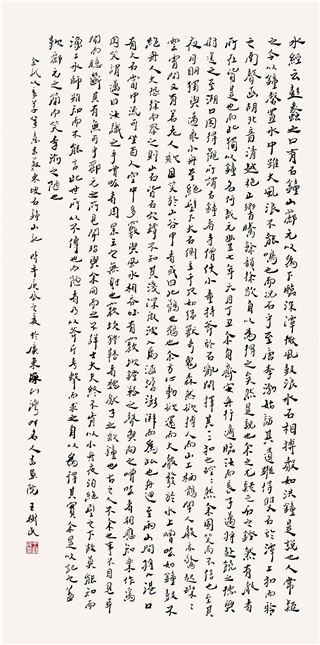 水經云彭蠡之口有石鐘山酈元以為下臨深潭微風鼓浪水石相搏聲如洪鐘是說也人常疑
之今以鐘磬置水中雖大風浪不能鳴也而況石乎至唐李渤始訪其遺踪得雙石于潭上扣而聆
之南聲函胡北音清越枹止響騰餘韻徐歇自以為得之矣然是說也余尤疑之石之鏗然有聲者
所在皆是也而此獨以鐘名何哉元豐七年六月丁丑余自齊安舟行適臨汝而長子邁將赴饒之德興
尉送之至湖口因得觀所謂石鐘者寺僧使小童持斧于亂石間擇其一二扣之硿硿然余固笑而不信也至其
夜月明獨與邁乘小舟至絕壁下大石側立千尺如猛獸奇鬼森然欲搏人而山上栖鶻聞人聲亦驚起磔磔
雲霄間又有若老人欬且笑于山谷中者或曰此鸛鶴也余方心動欲還而大聲發于水上噌吰如鐘鼓不
絕舟人大恐徐而察之則山下皆石穴罅不知其淺深微波入焉涵澹澎湃而為此也舟迴至兩山間將入港口
有大石當中流可坐百人空中而多竅與風水相吞吐有窾坎鏜鞳之聲與向之噌吰者相應如樂作焉
因笑謂邁曰汝識之乎噌吰者周景王之無射也窾坎鏜鞳者魏莊子之歌鐘也古之人不余欺也事不目見耳
聞而臆斷其有無可乎酈元之所見聞殆與余同而言之不詳士大夫終不肯以小舟夜泊絕壁之下故莫能知而
漁工水師雖知而不能言此世所以不傳也而陋者乃以斧斤考擊而求之自以為得其實余是以記之蓋
歎酈元之簡而笑李渤之陋也
蘇東坡石鐘山記 庚辰之夏於廣東深圳灣畔名人書畫院 王樹民